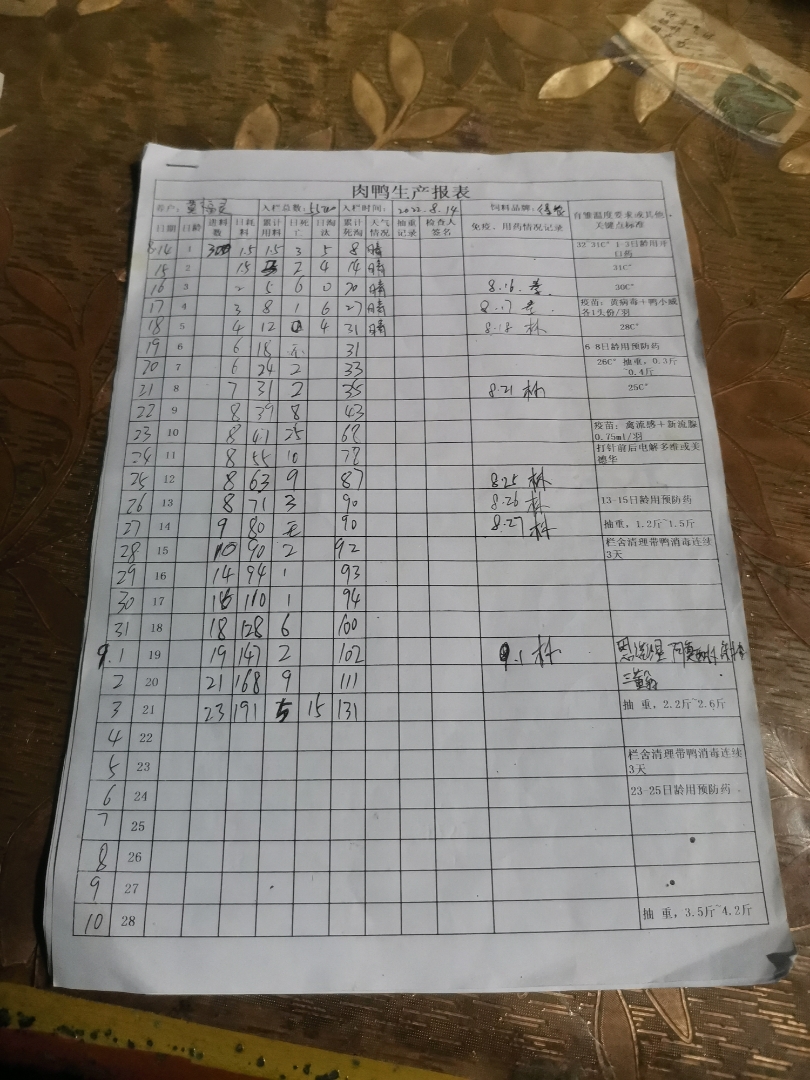 肉鸭生产报表
养户: 黄 入栏总数: 5500 入栏时间: 2022.8.14 饲料品牌: 育雏温度要求或其他关键点标准
日期 日龄 进料数 日耗料 累计用料 日死亡 日淘汰 累计死淘 天气情况 抽重记录 检查人签名 免疫、用药情况记录
8.14 1 300 1.5 1.5 3 5 8 晴 32~31C° 1-3日龄用开口药
15 2 1.5 2 4 14 晴 31C°
16 3 2 5 6 0 20 晴 8.16. 30C°
17 4 3 8 1 6 27 晴 8.17 疫苗: 黄病毒+鸭小减各1头份/羽
18 5 4 12 4 31 晴 8.18 林 28C°
19 6 6 18 无 31 6-8日龄用预防药
20 7 6 24 2 33 26C° 抽重, 0.3斤~0.4斤
21 8 7 31 2 35 8.21 林 25C°
22 9 8 39 8 43
23 10 8 47 25 68 疫苗: 禽流感+新流腺0.75ml/羽
24 11 8 55 10 78 打针前后电解多维或美德华
25 12 8 63 9 87 8.25 林
26 13 8 71 3 90 8.26 林 13-15日龄用预防药
27 14 9 80 无 90 8.27 林 抽重, 1.2斤~1.5斤
28 15 10 90 2 92 栏舍清理带鸭消毒连续3天
29 16 14 94 1 93
30 17 16 110 1 94
31 18 18 128 6 100
9.1 19 19 147 2 102 9.1 林
2 20 21 168 9 111
3 21 23 191 5 15 131 抽 重, 2.2斤~2.6斤
4 22
5 23 栏舍清理带鸭消毒连续3天
6 24 23-25日龄用预防药
7 25
8 26
9 27
10 28 抽 重, 3.5斤~4.2斤